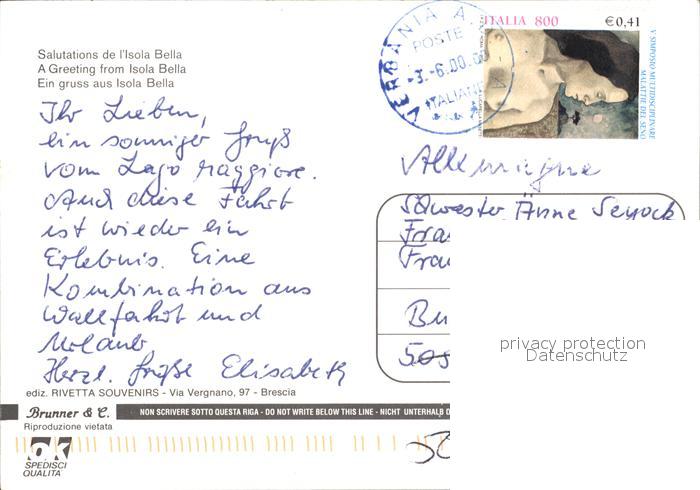 Salutations de l'Isola Bella
A Greeting from Isola Bella
Ein gruss aus Isola Bella
Ihr Lieben,
ein sonniger Gruß
vom Lago Maggiore.
Auch diese Fahrt
ist wieder ein
Erlebnis. Eine
Kombination aus
Wallfahrt und
Urlaub
Herzl. Grüße Elisabeth
ediz. RIVETTA SOUVENIRS - Via Vergnano, 97 - Brescia
Brunner & C.
NON SCRIVERE SOTTO QUESTA RIGA - DO NOT WRITE BELOW THIS LINE - NICHT UNTERHALB D
Riproduzione vietata
ok
SPEDISCI
QUALITÀ
VERBANIA A.
POSTE
-3.-6.00.
ITALIANE
ITALIA 800
€0,41
V SIMPOSIO MULTIDISCIPLINARE
MALATTIE DEL SENO
Allemagne
Schwester Änne
Fra
Frau
Bu
505
privacy protection
Datenschutz